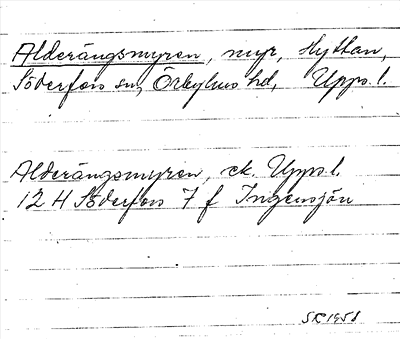 Alderängsmyren, myr, Hyttan,
Söderfors sn, Örbyhus hd, Upps. l.
Alderängsmyren, ek. Upps. l.
12 H Söderfors 7 f Ingensjön
SR 1951